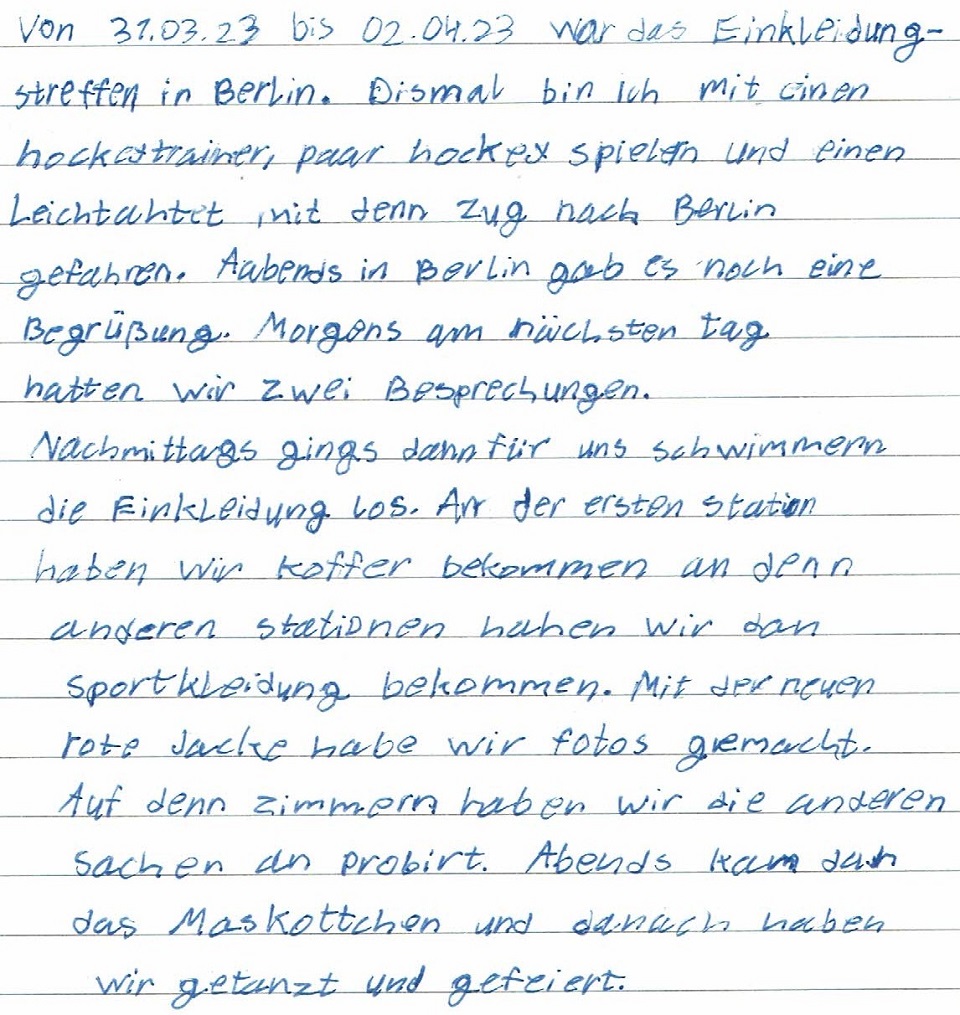 Von 31.03.23 bis 02.04.23 war das Einkleidung-
streffen in Berlin. Dismal bin ich mit einen
hockeytrainer, paar hockey spielern und einen
Leichtahtet mit denn Zug nach Berlin
gefahren. Aabends in Berlin gab es noch eine
Begrüßung. Morgens am nächsten tag
hatten wir zwei Besprechungen.
Nachmittags gings dann für uns schwimmern
die Einkleidung los. An der ersten station
haben wir koffer bekommen an denn
anderen stationen hahen wir dan
sportkleidung bekommen. Mit der neuen
rote Jacke habe wir fotos gemacht.
Auf denn zimmern haben wir die anderen
sachen an probirt. Abends kam dan
das Maskottchen und danach haben
wir getanzt und gefeiert.